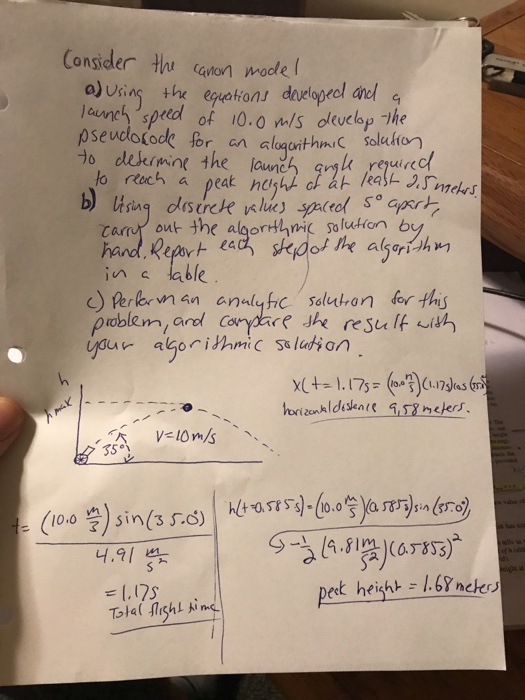 Consider the canon model
a) Using the equations developed and a
launch speed of 10.0 m/s develop the
pseudocode for an alogarithmic solution
to determine the launch angle required
to reach a peak height of at least 2.5 meters.
b) Using discrete values spaced 5° apart,
carry out the algorithmic solution by
hand. Report each step of the algorithm
in a table.
c) Perform an analytic solution for this
problem, and compare the result with
your algorithmic solution.
x(t=1.17s = (10.0 m/s)(1.17s)cos(35.0°)
horizontal distance 9.58 meters.
h
h max
35°
V=10 m/s
t = (10.0 m/s) sin(35.0°)
4.91 m/s²
= 1.17s
Total flight time
h(t=0.585s) = (10.0 m/s)(0.585s) sin(35.0°)
- 1/2 (9.81 m/s²)(0.585s)²
peek height = 1.68 meters